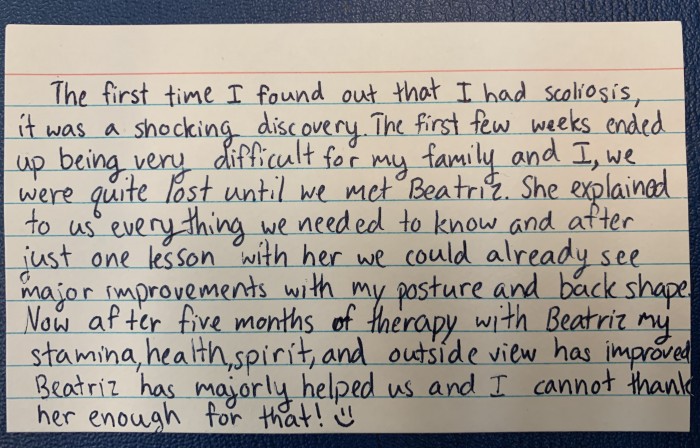 The first time I found out that I had scoliosis,
it was a shocking discovery. The first few weeks ended
up being very difficult for my family and I, we
were quite lost until we met Beatriz. She explained
to us everything we needed to know and after
just one lesson with her we could already see
major improvements with my posture and back shape.
Now after five months of therapy with Beatriz my
stamina, health, spirit, and outside view has improved
Beatriz has majorly helped us and I cannot thank
her enough for that! :)